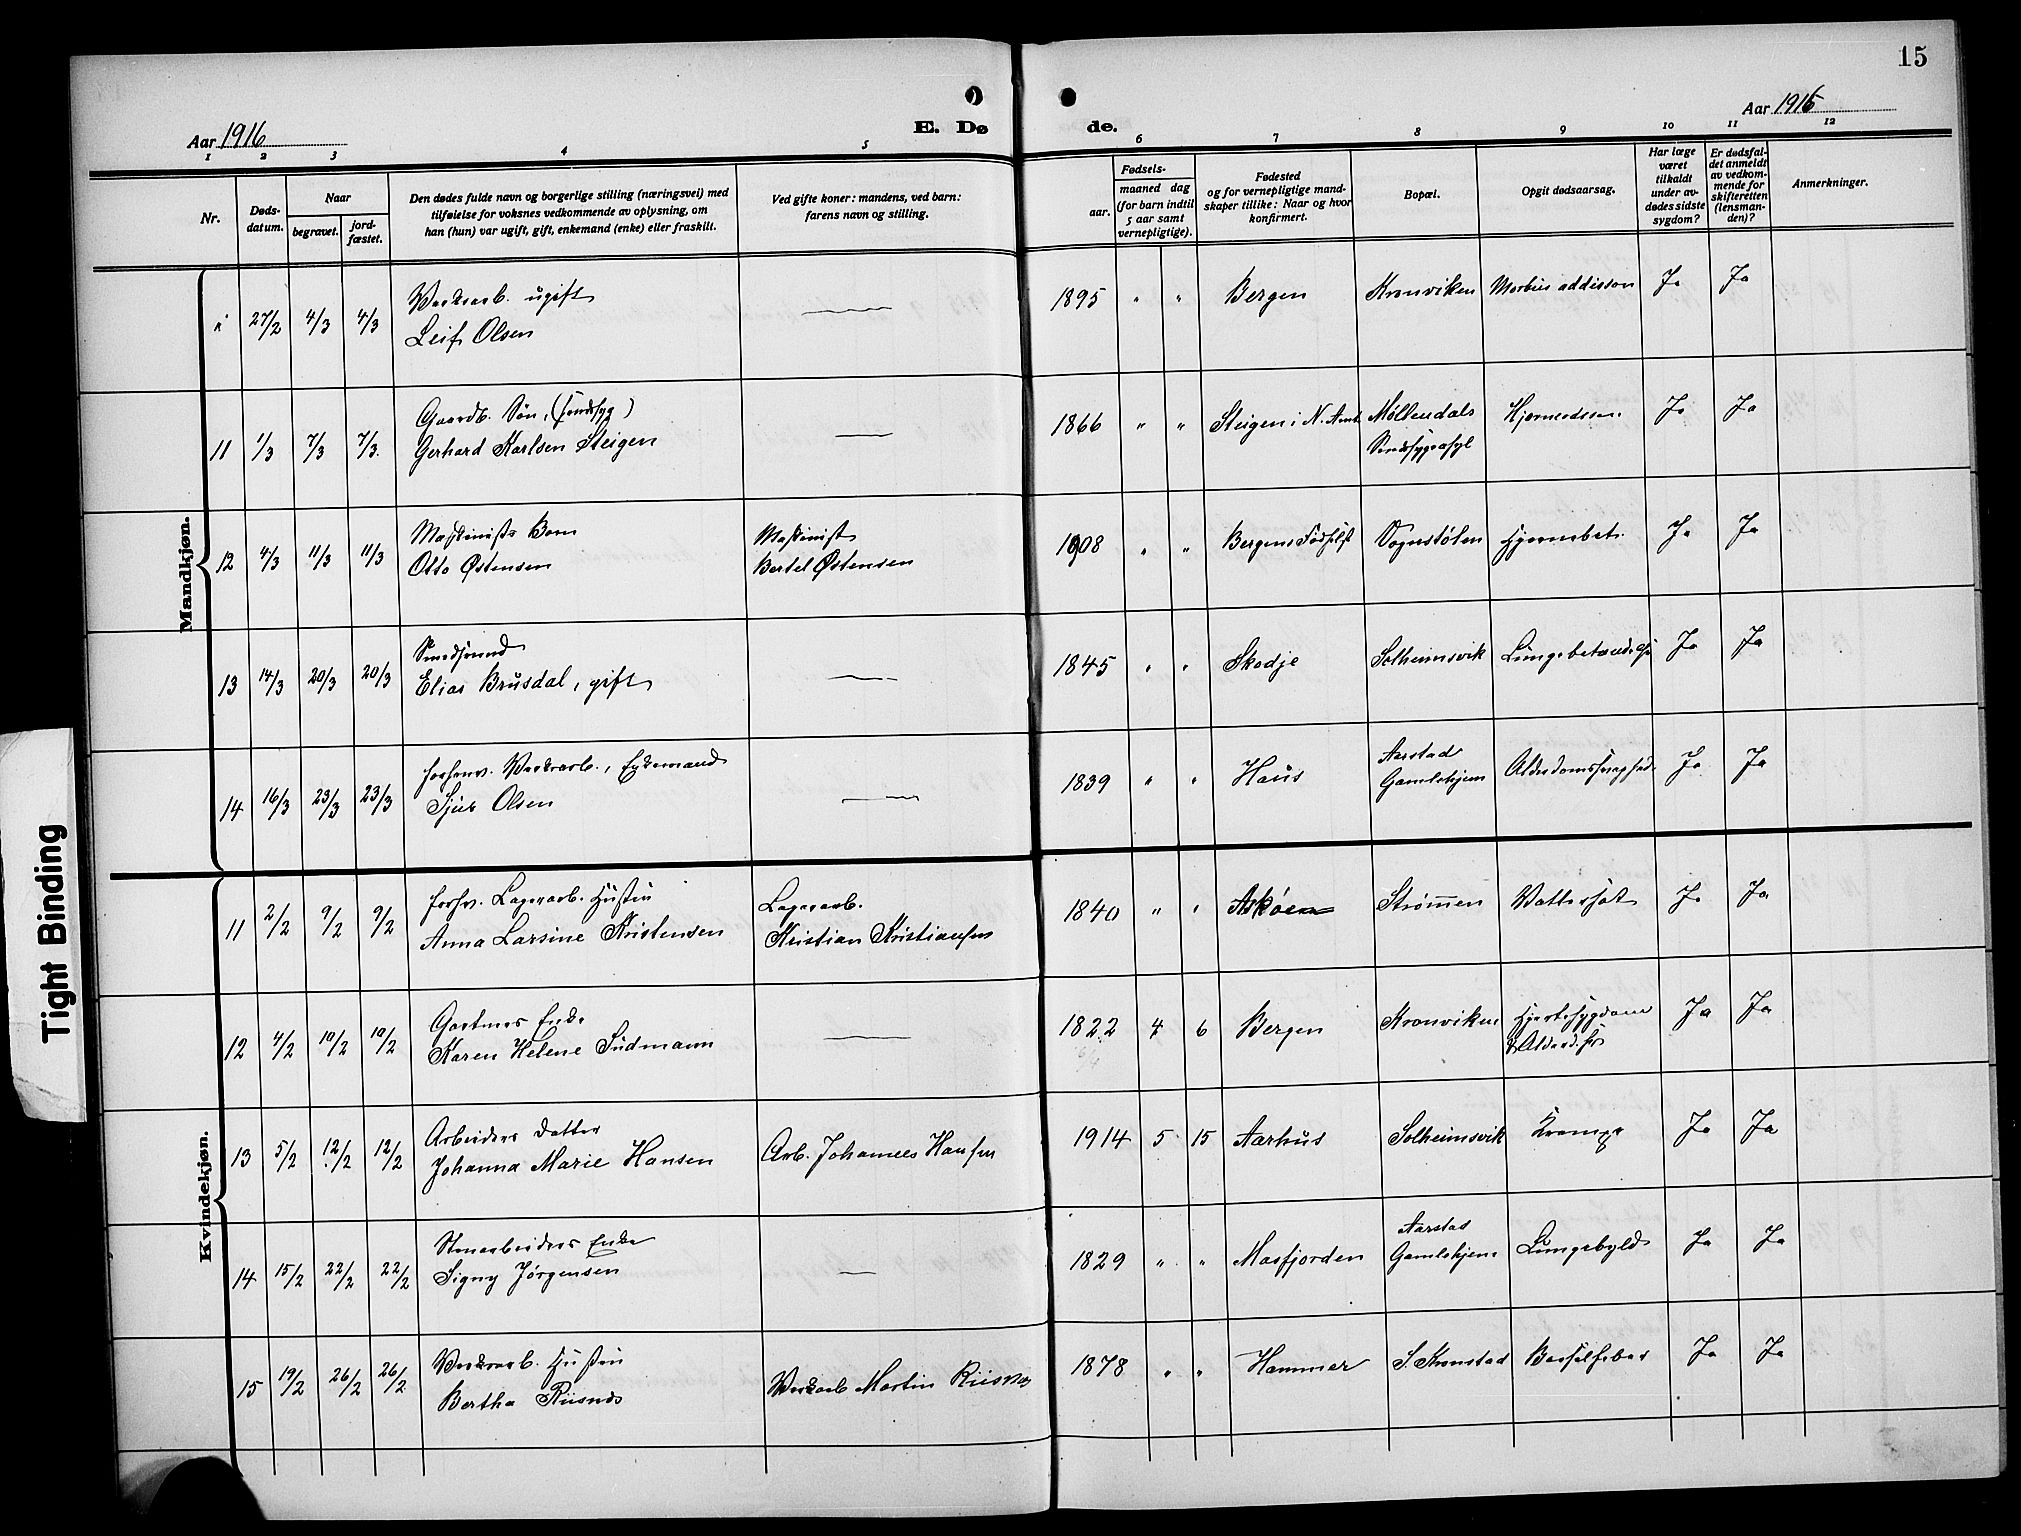 15
Aar 1916
E. Dø
de.
Aar 1916
1 2 3 4 5
6 7 8 9 10 11 12
Nr.
Døds-
datum.
Naar
begravet.
jord-
fæstet.
Den dødes fulde navn og borgerlige stilling (næringsvei) med
tilføielse for voksnes vedkommende av oplysning, om
han (hun) var ugift, gift, enkemand (enke) eller fraskilt.
Ved gifte koner: mandens, ved barn:
farens navn og stilling.
Fødsels-
aar.
maaned dag
(for barn indtil
5 aar samt
vernepligtige).
Fødested
og for vernepligtige mand-
skaper tillike: Naar og hvor
konfirmert.
Bopæl.
Opgit dødsaarsag.
Har læge
været
tilkaldt
under av-
dødes sidste
sygdom?
Er dødsfal-
det anmeldt
av vedkom-
mende for
skifteretten
(lensman-
den)?
Anmerkninger.
Mandkjøn.
27/2 4/3 4/3 Verksarb. ugift
Leif Olsen
1895 " " Bergen Kronviken Morbus addisson Ja Ja
11 1/3 7/3 7/3. Gaardb. Søn, (sindssyg)
Gerhard Karlsen Steigen
1866 " " Steigen i N. Amt Møllendals
Sindssygeasyl
Ja Ja
12 4/3 11/3 11/3 Maskinists Barn
Otto Østensen
Maskinist
Bertel Østensen
1908 " " Bergens Fødselsst Vognstølen Hjernebet. Ja Ja
13 14/3 20/3 20/3 Smedsvend
Elias Brusdal, gift
1845 " " Skodje Solheimsvik Lungebetændelse Ja Ja
14 16/3 23/3 23/3 forhenv. Verksarb., Enkemand
Sjur Olsen
1839 " " Haus Aarstad
Gamlehjem
Ja Ja
Kvindekjøn.
11 2/2 9/2 9/2 forhv. Lagerarb. Hustru
Anna Larsine Kristensen
Lagerarb.
Kristian Kristiansen
1840 " " Askøen Strømmen Vattersot Ja Ja
12 4/2 10/2 10/2 Gartners Enke
Karen Helene Sudmann
1822 4 6 Bergen Kronviken Hjertesygdom
Ja Ja
13 5/2 12/2 12/2 Arbeiders datter
Johanna Marie Hansen
Arb. Johannes Hansen
1914 5 15 Aarhus Solheimsvik Krampe Ja Ja
14 15/2 22/2 22/2 Stenarbeiders Enke
Signy Jørgensen
1829 " " Masfjorden Aarstad
Gamlehjem
Lungebyld Ja Ja
15 19/2 26/2 26/2 Verksarb. Hustru
Bertha Riisnes
Verksarb Martin Riisnes
1878 " " Hammer S. Kronstad Barselfeber Ja Ja
Tight Binding